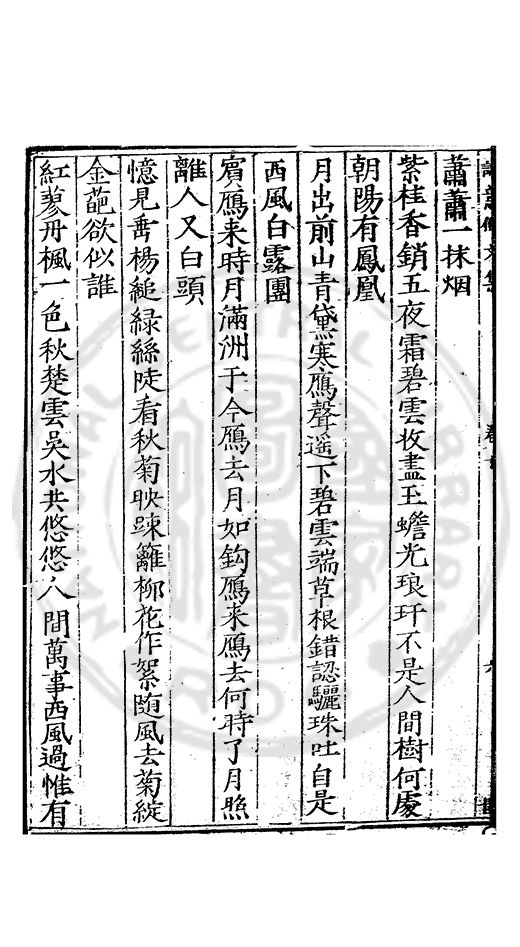 蕭蕭一抹烟
紫桂香銷五夜霜碧雲收盡玉蟾光琅玕不是人間樹何處
朝陽有鳳凰
月出前山青黛寒鴈聲遥下碧雲端草根錯認驪珠吐自是
西風白露團
賓鴈来時月滿洲于今鴈去月如鈎鴈来鴈去何時了月照
離人又白頭
憶見垂楊縋緑絲陡看秋菊映踈籬柳花作絮随風去菊綻
金葩欲似誰
紅蓼丹楓一色秋楚雲吳水共悠悠人間萬事西風過惟有